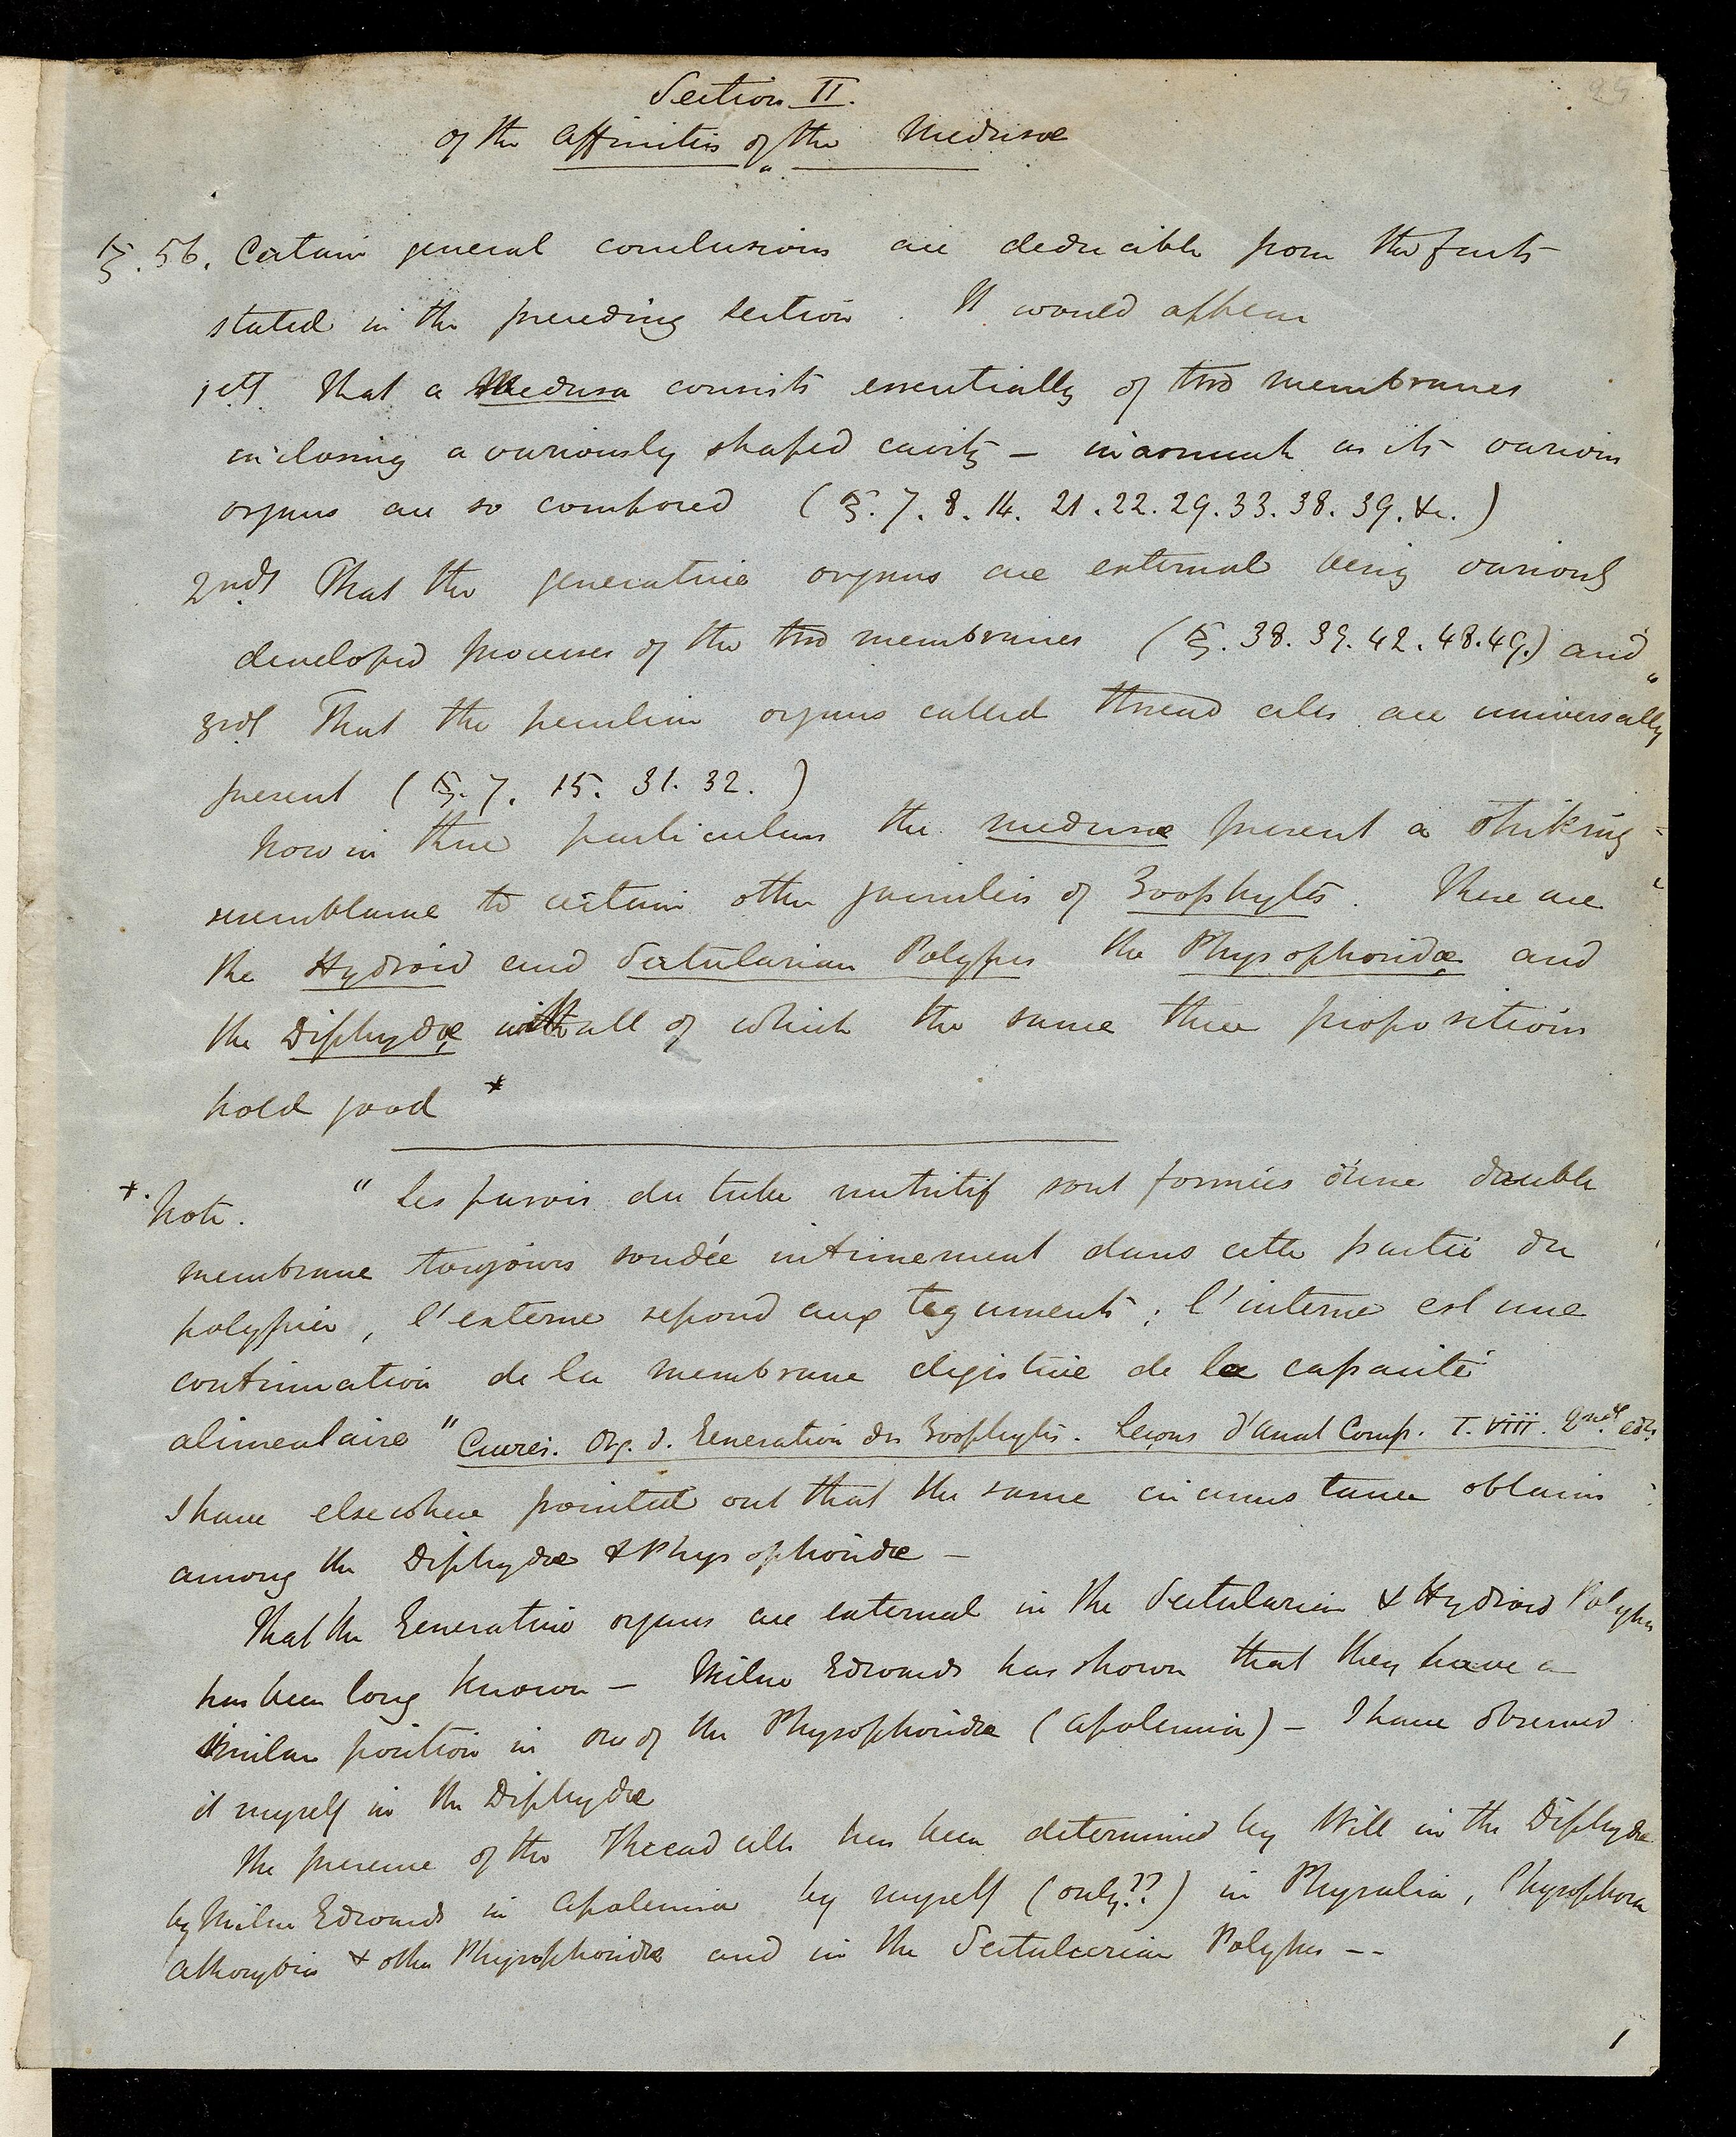 25
Section II.
Of the Affinities of the Medusæ
§. 56. Certain general conclusions are deducible from the facts
stated in the preceding section. It would appear
1st. That a Medusa consists essentially of two membranes
inclosing a variously shaped cavity – inasmuch as its various
organs are so composed (§. 7. 8. 14. 21. 22. 29. 33. 38. 39. &c.)
2ndly That the generative organs are external being variously
developed processes of the two membranes (§. 38. 39. 42. 48. 49.) and
3rdly That the peculiar organs called thread cells are universally
present (§. 7. 15. 31. 32.)
Now in these particulars the medusæ present a striking
resemblance to certain other families of Zoophytes. These are
the Hydroid and Sertularian Polypes the Physophoridæ and
the Diphydæ with all of which the same three propositions
hold good *
*. Note. "Les parois du tube nutritif sont formées d'une double
membrane toujours soudée intimement dans cette partie du
polypier, l'externe repond aux teguments; l'interne est une
continuation de la membrane digestive de la capacité
alimentaire" Cuvier. Org. d. Generation des Zoophytes. Leçons d'Anat Comp. T. viii. 2me. edn.
I have elsewhere pointed out that the same circumstance obtains
among the Diphydæ & Physophoridæ –
That the Generative organs are external in the Sertularian & Hydroid Polypes
has been long known – Milne Edwards has shown that they have a
similar position in one of the Physophoridæ (Apolemia) – I have observed
it myself in the Diphydæ
The presence of the Thread cells has been determined by Will in the Diphydæ
by Milne Edwards in Apolemia by myself (only??) in Physalia, Physophora
Athorybia & other Physophoridæ and in the Sertularian Polypes --
1